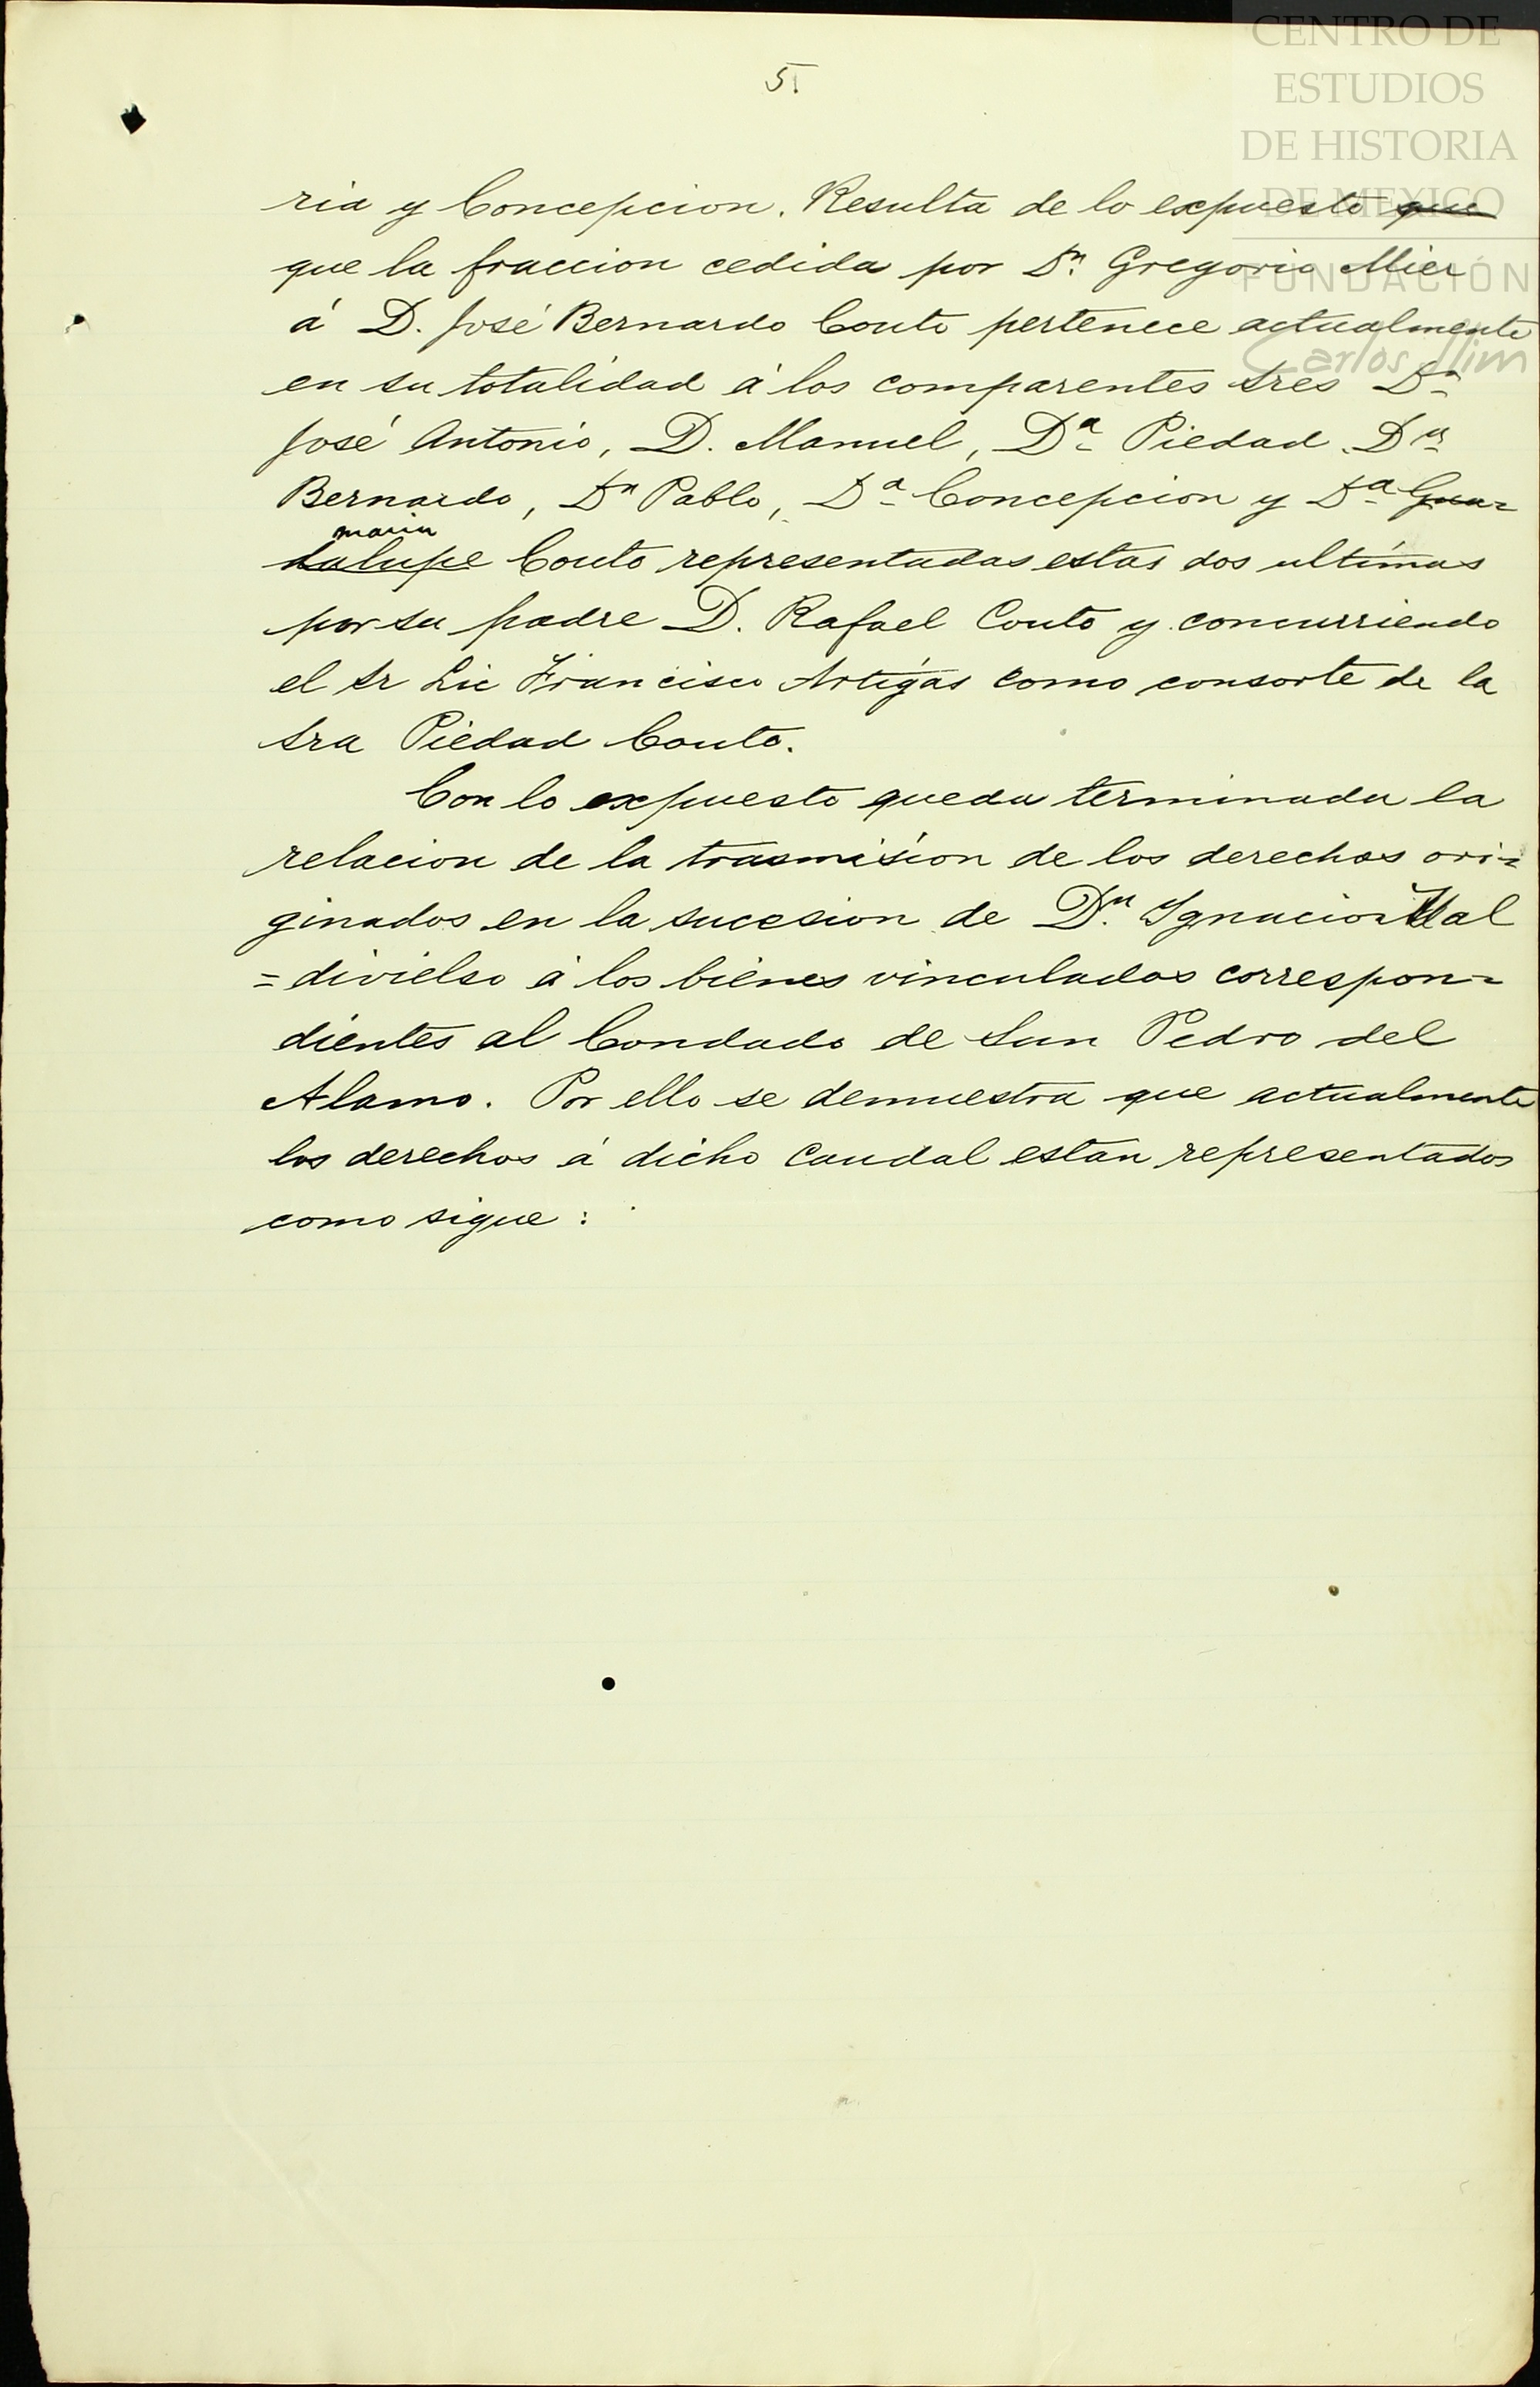 CENTRO DE
ESTUDIOS
DE HISTORIA
DE MEXICO
FUNDACIÓN
Carlos Slim
5.
ria y Concepcion. Resulta de lo expuesto que
que la fraccion cedida por Dn. Gregorio Mier
á D. José Bernardo Couto pertenece actualmente
en su totalidad á los comparentes sres Dn
José Antonio, D. Manuel, Da Piedad, Dn
Bernardo, Dn Pablo, Da Concepcion y Da Gua=
maria
dalupe Couto representadas estas dos ultimas
por su padre D. Rafael Couto y concurriendo
el sr Lic Francisco Artigas como consorte de la
sra Piedad Couto.
Con lo expuesto queda terminada la
relacion de la trasmision de los derechos ori=
ginados en la sucesion de Dn. Ignacio Val
=divielso á los bienes vinculados correspon=
dientes al Condado de San Pedro del
Alamo. Por ello se demuestra que actualmente
los derechos á dicho caudal estan representados
como sigue: